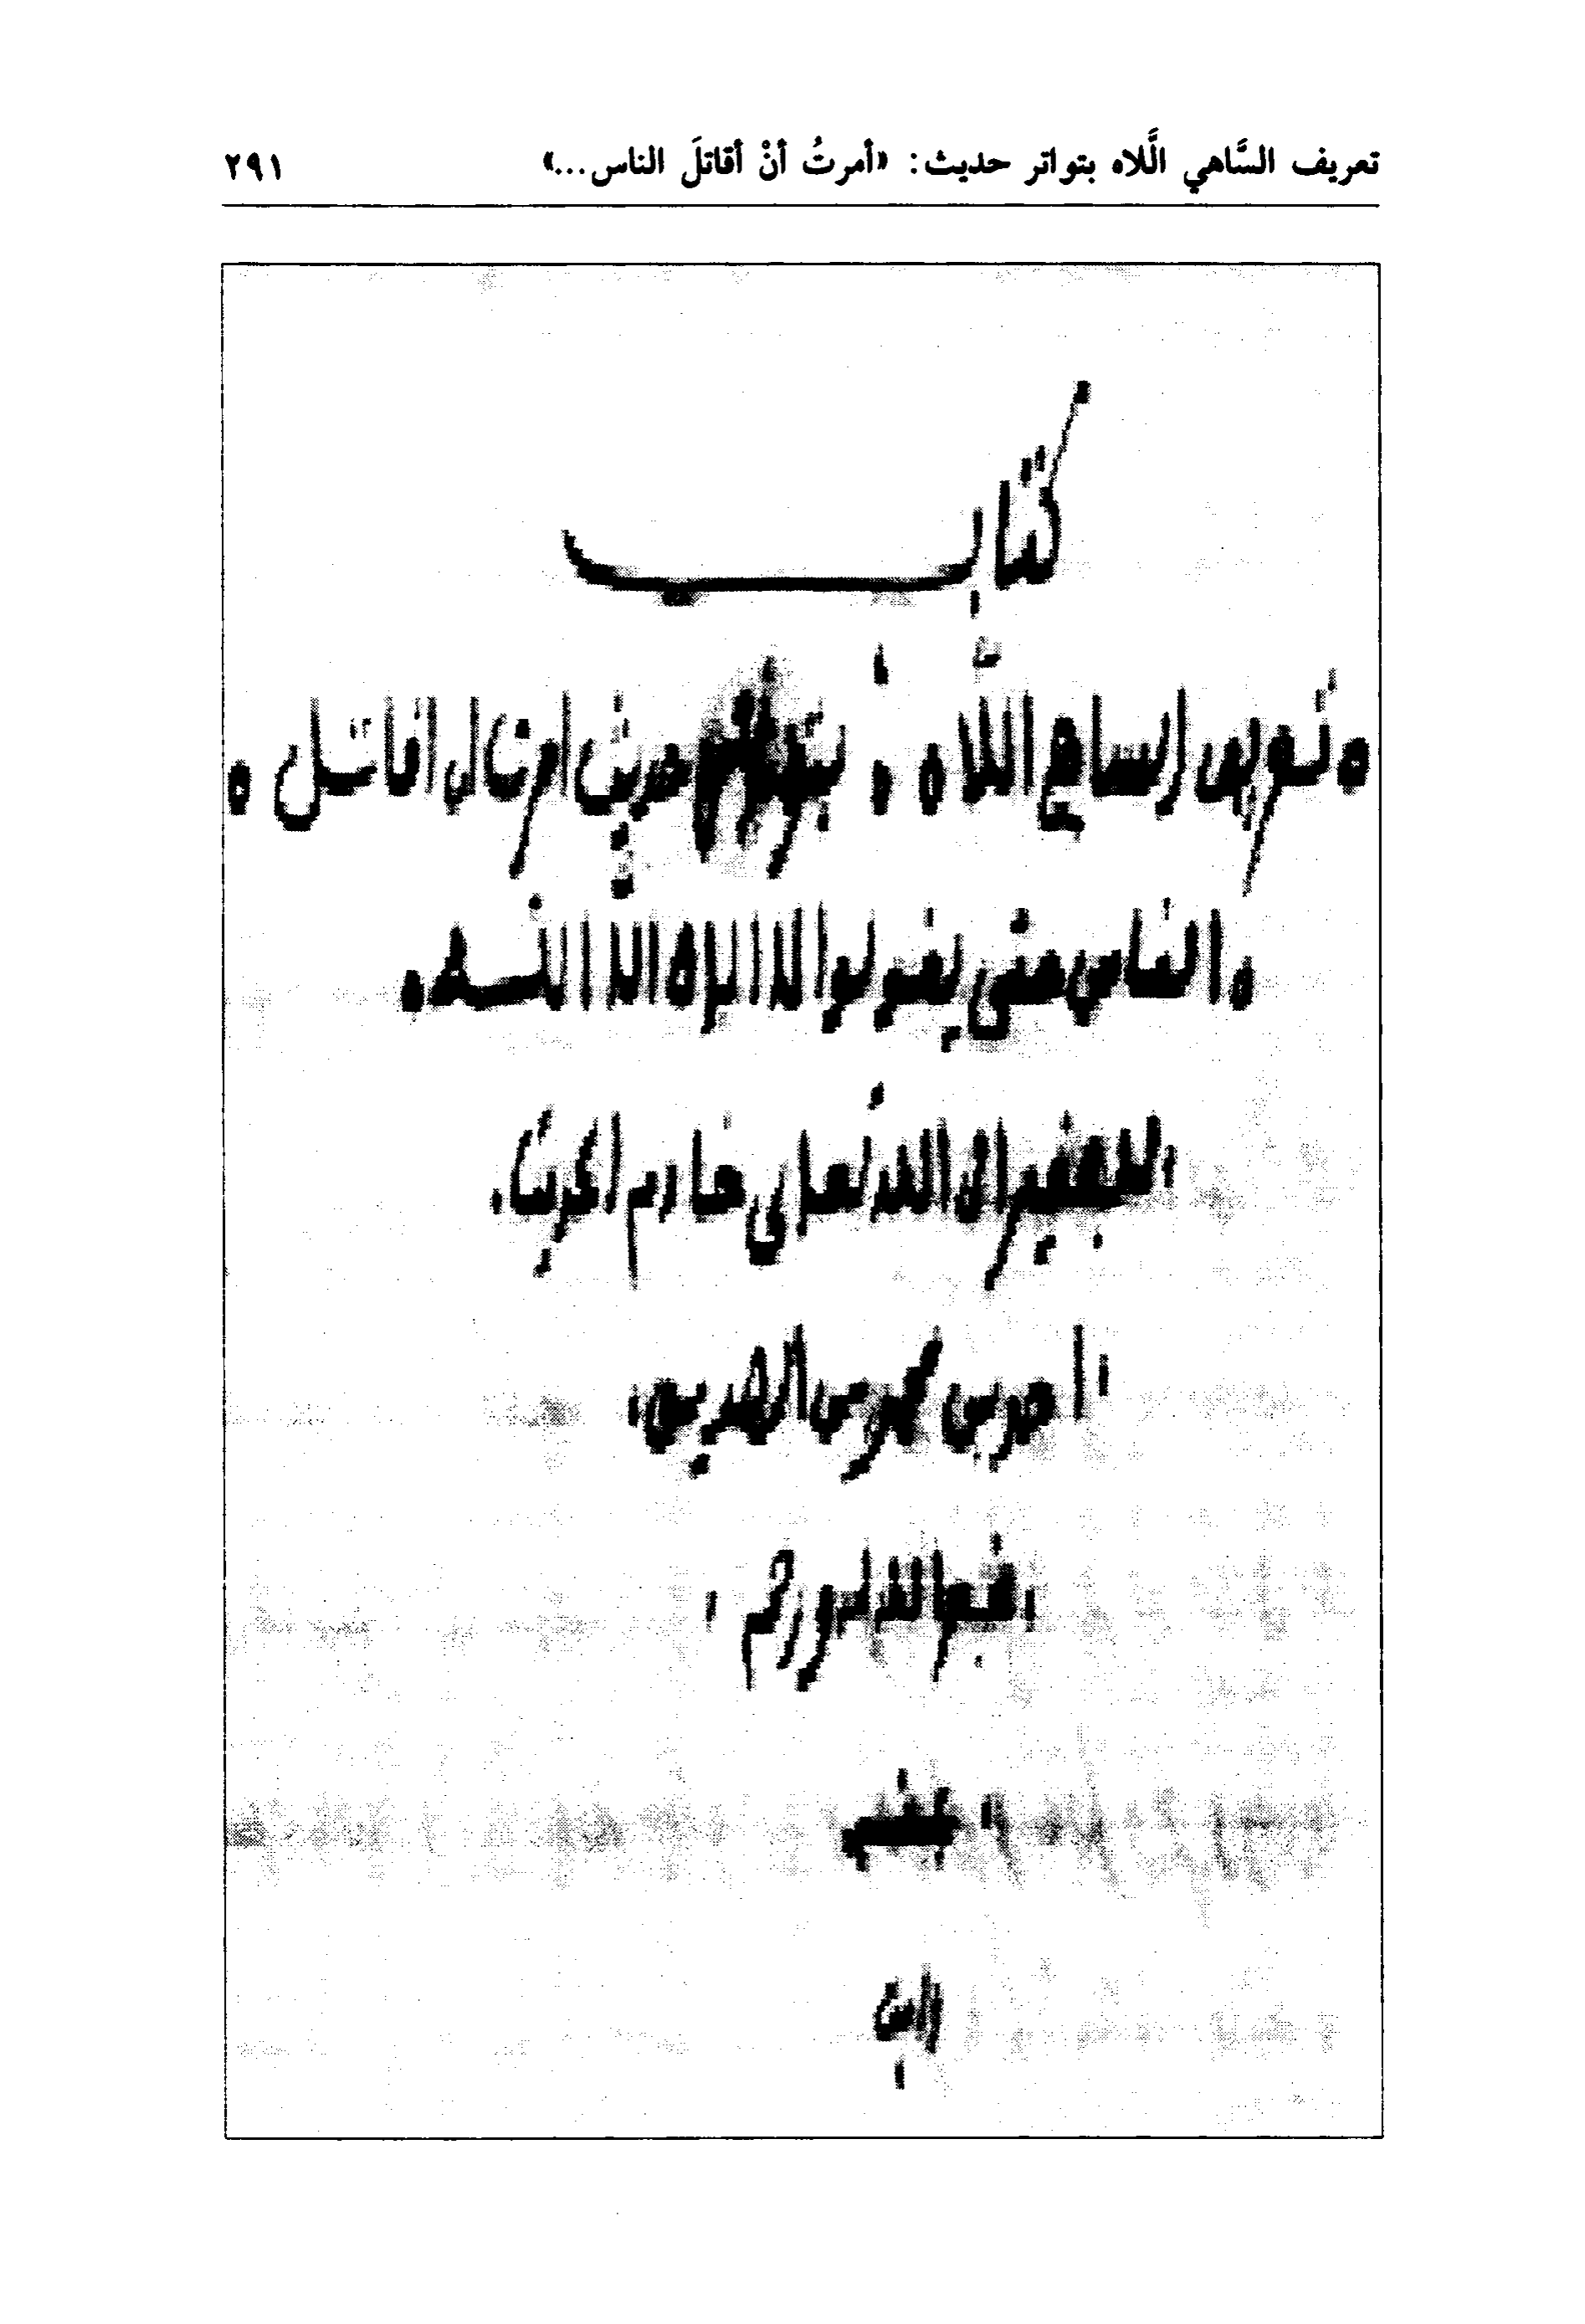 تعريف السَّاهي الَّلاه بتواتر حديث: «أمرتُ أنْ أقاتلَ الناس...» ٢٩١
كتاب
تعريف الساهي اللاه بتواتر حديث امرت ان اقاتل
الناس حتى يقولوا لا اله الا الله
للفقير الى الله تعالى خادم الحديث
احمد بن محمد بن الصديق